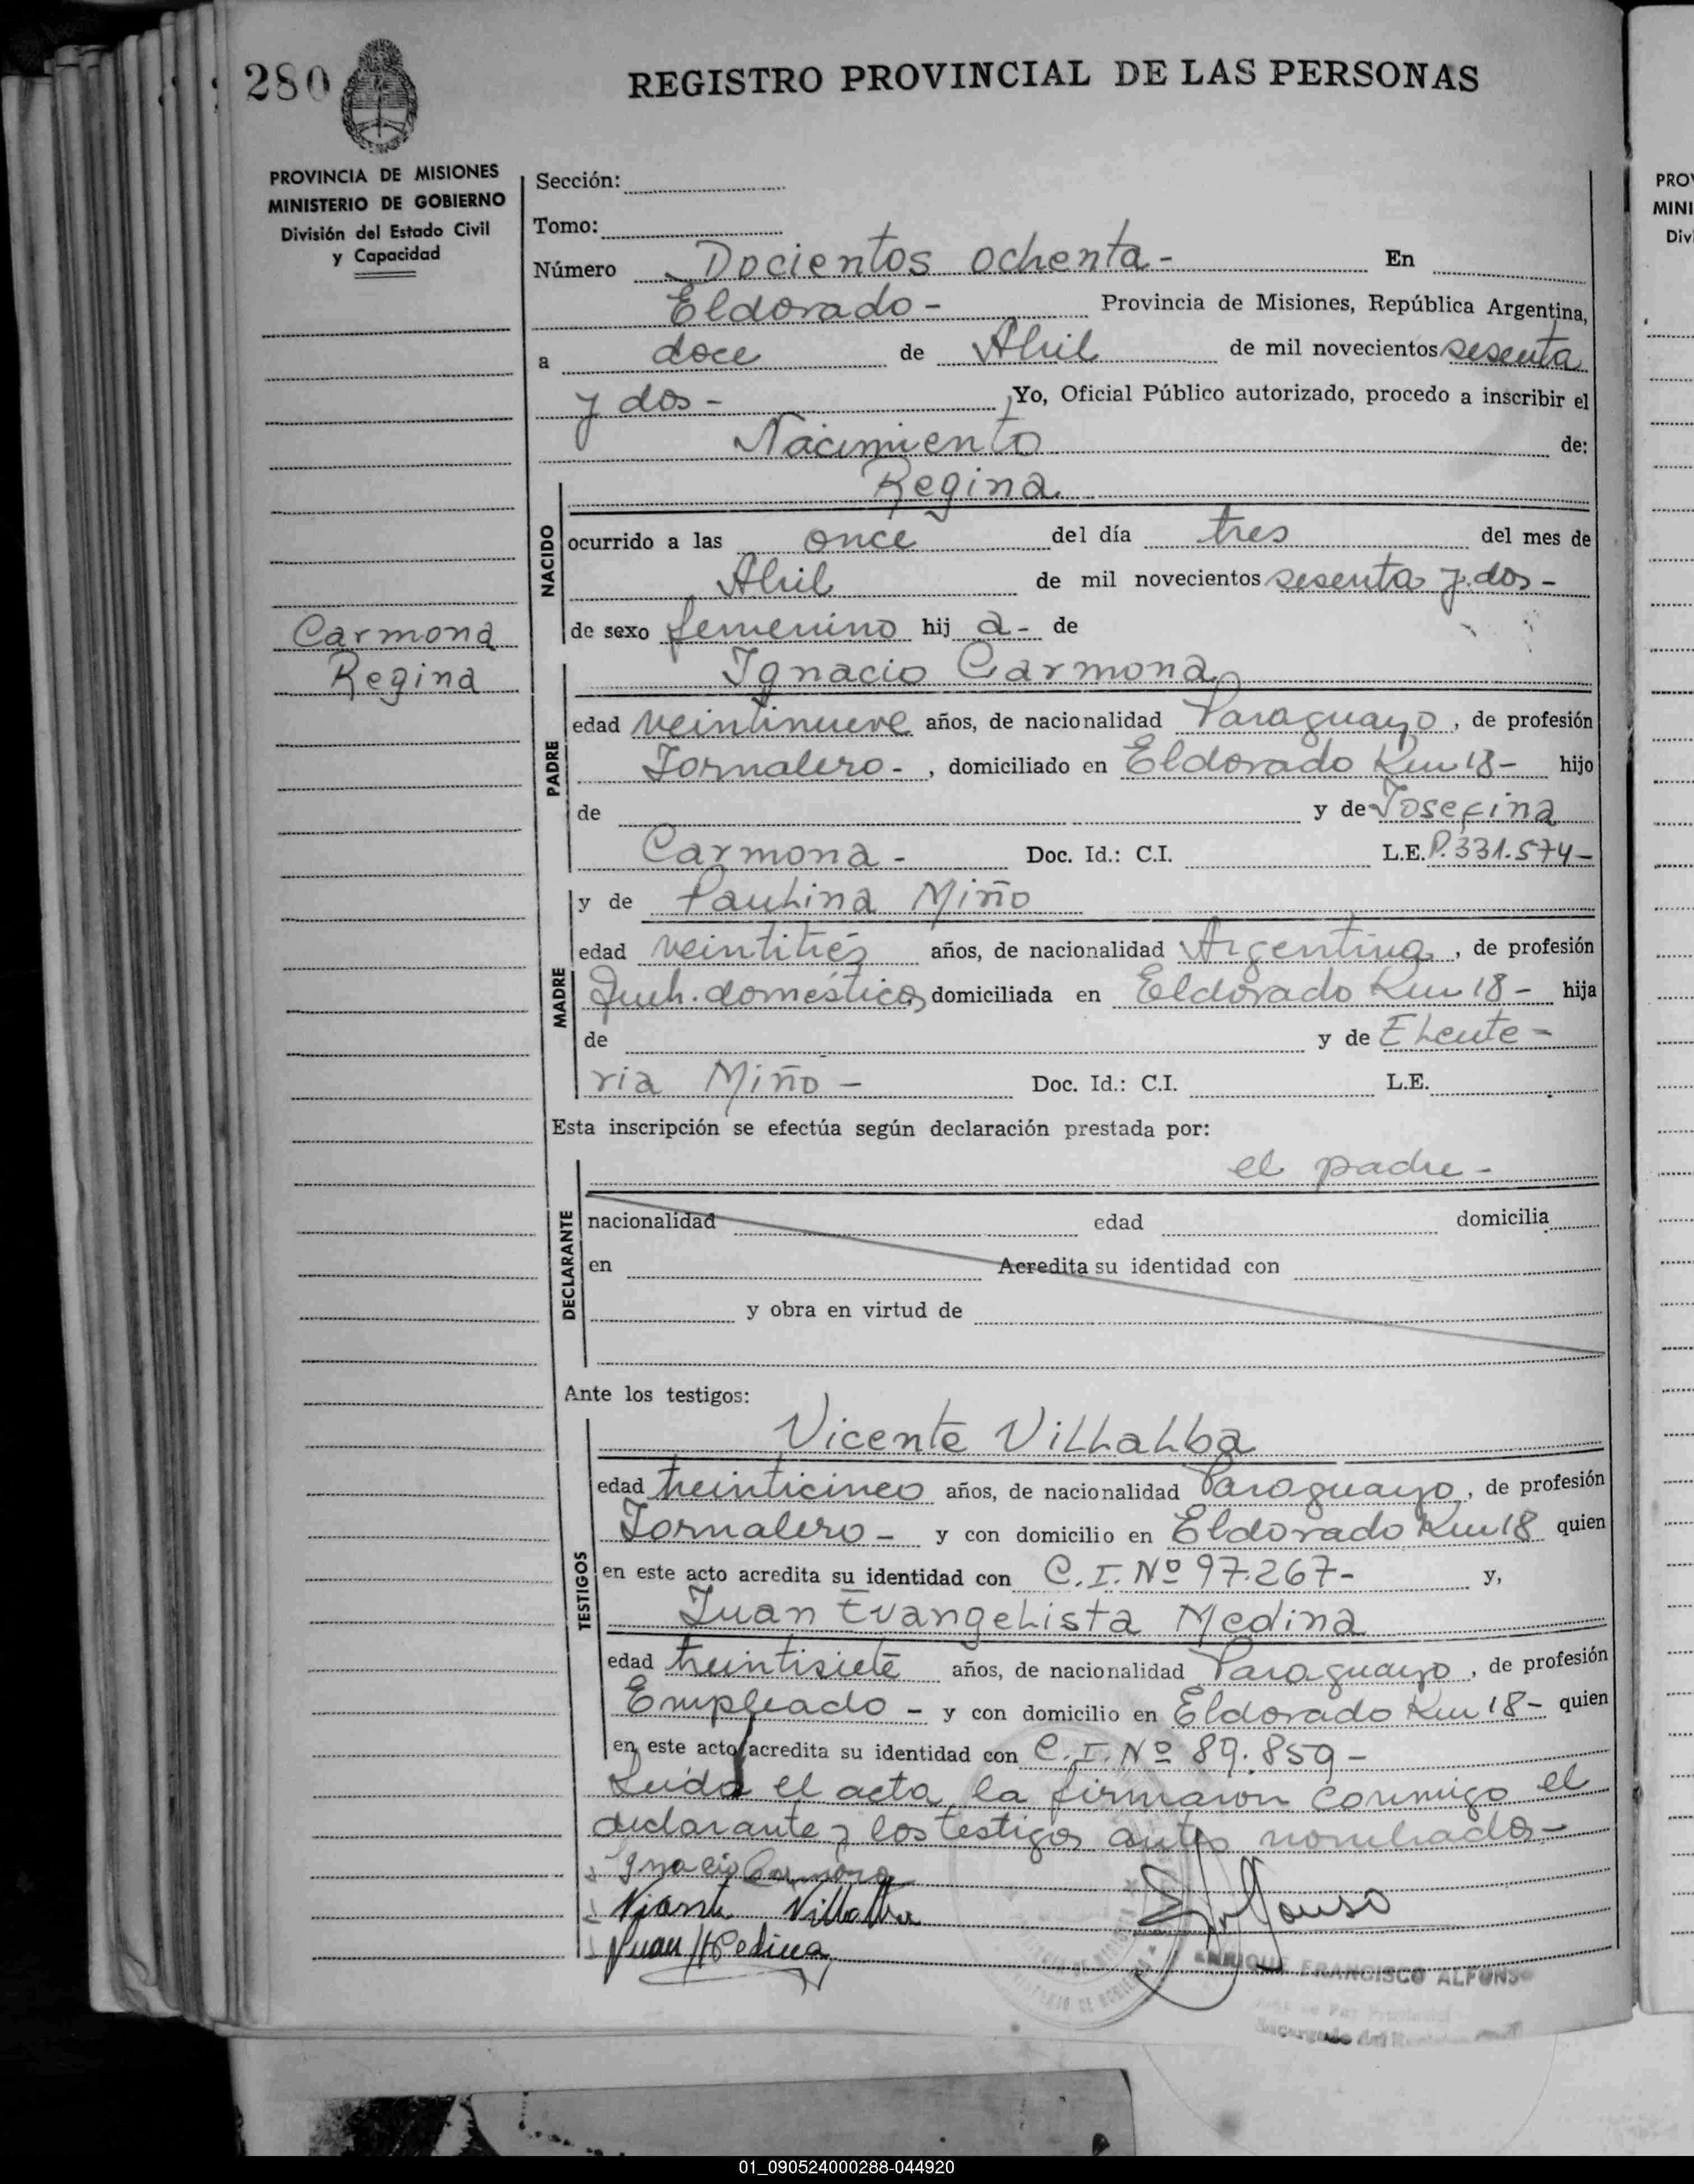 280
REGISTRO PROVINCIAL DE LAS PERSONAS
PROVINCIA DE MISIONES
MINISTERIO DE GOBIERNO
División del Estado Civil
y Capacidad
Sección:
Tomo:
Número Docientos ochenta - En
Eldorado - Provincia de Misiones, República Argentina,
a doce de Abril de mil novecientos sesenta
y dos - Yo, Oficial Público autorizado, procedo a inscribir el
Nacimiento de:
NACIDO
Regina
ocurrido a las once del día tres del mes de
Abril de mil novecientos sesenta y dos -
de sexo femenino hij a - de
Carmona
Regina
PADRE
Ignacio Carmona
edad veintinueve años, de nacionalidad Paraguayo, de profesión
Jornalero - , domiciliado en Eldorado Km 18 - hijo
de y de Josefina
Carmona - Doc. Id.: C.I. L.E. P. 331.574 -
MADRE
y de Paulina Miño
edad veintitrés años, de nacionalidad Argentina, de profesión
Queh. domésticos, domiciliada en Eldorado Km 18 - hija
de y de Eleute -
ria Miño - Doc. Id.: C.I. L.E.
Esta inscripción se efectúa según declaración prestada por:
el padre -
DECLARANTE
nacionalidad edad domicilia
en Acredita su identidad con
y obra en virtud de
Ante los testigos:
TESTIGOS
Vicente Villalba
edad treinticinco años, de nacionalidad Paraguayo, de profesión
Jornalero - y con domicilio en Eldorado Km 18 quien
en este acto acredita su identidad con C. I. Nº 97.267 - y,
Juan Evangelista Medina
edad treintisiete años, de nacionalidad Paraguayo, de profesión
Empleado - y con domicilio en Eldorado Km 18 - quien
en este acto acredita su identidad con C. I. Nº 89.859 -
Leida el acta, la firmaron conmigo el
declarante y los testigos antes nombrados -
Ignacio Carmona
Vicente Villalba
Juan E Medina
ENRIQUE FRANCISCO ALFONSO
PROV
MINI
Div
01_090524000288-044920